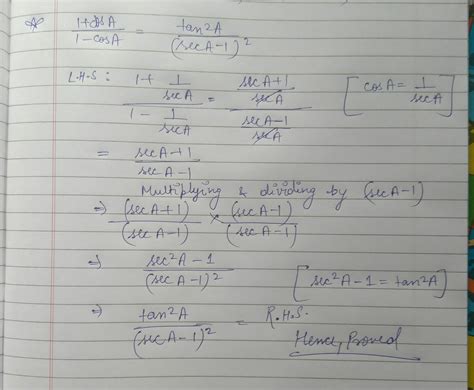 (1+cosA)/(1-cosA) = tan²A/(secA-1)²
L.H.S : (1+ 1/secA)/(1- 1/secA) = ((secA+1)/secA)/((secA-1)/secA) [cosA = 1/secA]
= (secA+1)/(secA-1)
Multiplying & dividing by (secA-1)
⇒ (secA+1)/(secA-1) × (secA-1)/(secA-1)
⇒ (sec²A-1)/(secA-1)² [sec²A-1 = tan²A]
⇒ tan²A/(secA-1)² = R.H.S.
Hence, Proved